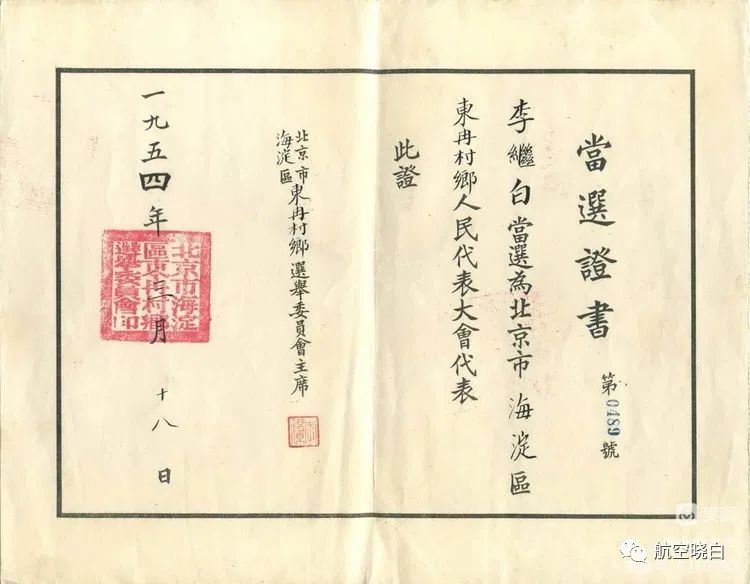 當選證書
第0489號
李繼白當選為北京市海淀區
東冉村鄉人民代表大會代表
此證
北京市
海淀區
東冉村鄉選舉委員會主席
一九五四年三月十八日
北京市海淀
區東冉村鄉
選舉委員會印
航空晓白